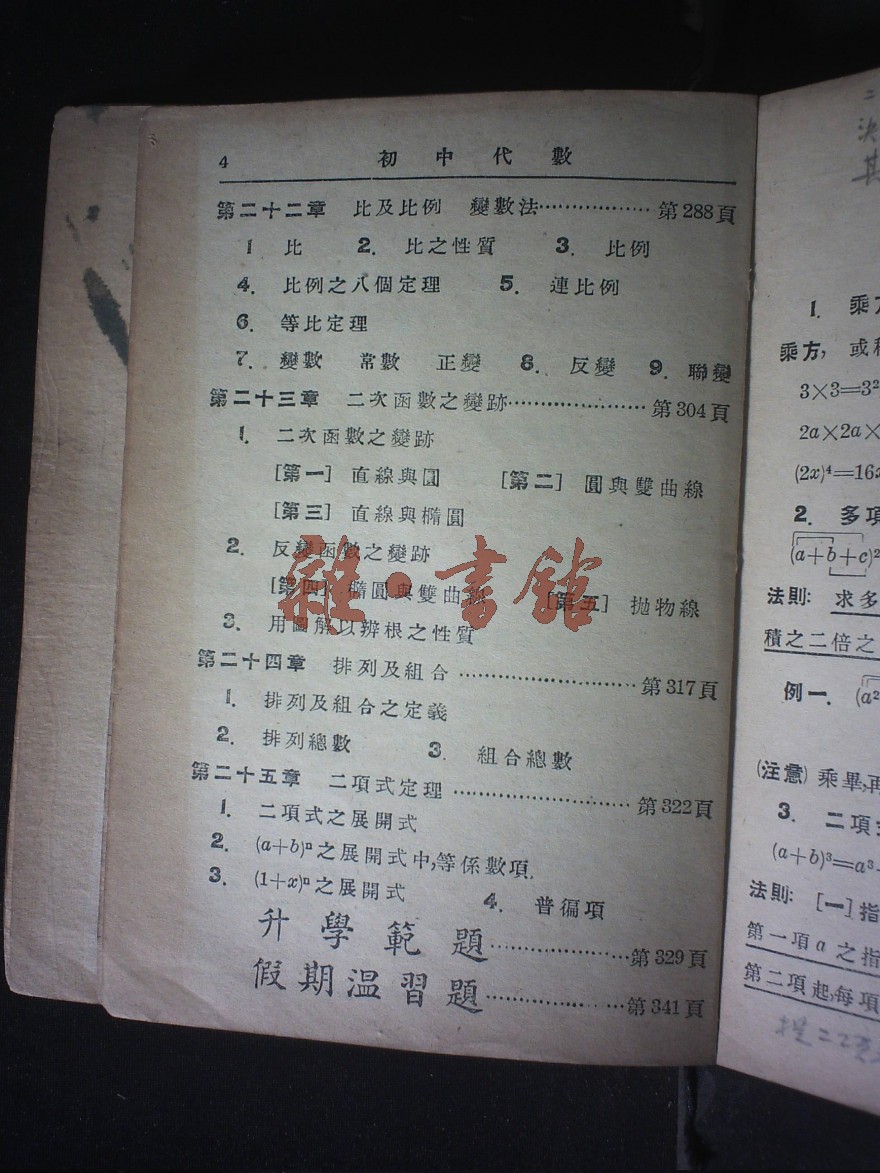 4 初中代數
第二十二章 比及比例 變數法……………… 第288頁
1 比 2. 比之性質 3. 比例
4. 比例之八個定理 5. 連比例
6. 等比定理
7. 變數 常數 正變 8. 反變 9. 聯變
第二十三章 二次函數之變跡………………… 第304頁
1. 二次函數之變跡
[第一] 直線與圓 [第二] 圓與雙曲線
[第三] 直線與橢圓
2. 反變函數之變跡
[第四] 橢圓與雙曲線 [第五] 拋物線
3. 用圖解以辨根之性質
第二十四章 排列及組合 ……………………… 第317頁
1. 排列及組合之定義
2. 排列總數 3. 組合總數
第二十五章 二項式定理 ……………………… 第322頁
1. 二項式之展開式
2. (a+b)ⁿ之展開式中,等係數項.
3. (1+x)ⁿ之展開式 4. 普徧項
升學範題…………………第329頁
假期溫習題…………………第341頁
雜·書館
二
決
其
1. 乘方
乘方, 或
3×3=3²
2a×2a×
(2x)⁴=16x
2. 多項
(a+b+c)²
法則: 求多
積之二倍之
例一. (a²
(注意) 乘畢,再
3. 二項式
(a+b)³=a³
法則: [一]指
第一項a之指
第二項起,每項